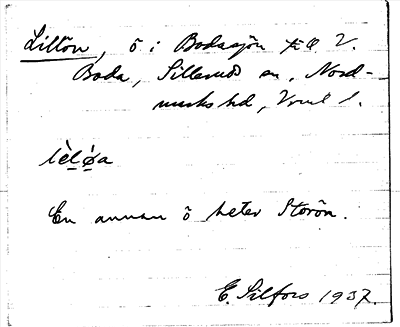 Lillön, ö i Bodasjön f. Ö. V.
Boda, Sillerud sn, Nord-
marks hd, Vrml l.
lèl̲ǿ̲a
En annan ö heter Storön.
E. Silfors 1937.